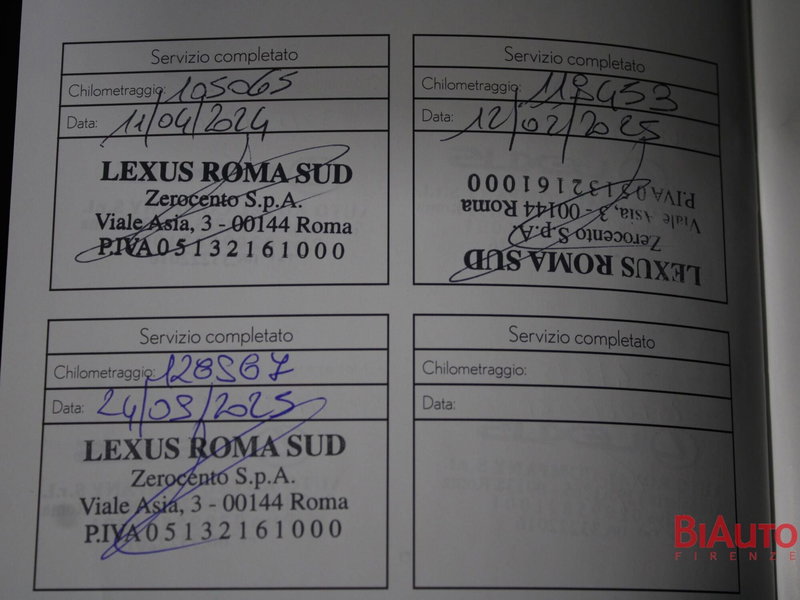 Servizio completato
Chilometraggio: 105065
Data: 11/04/2024
LEXUS ROMA SUD
Zerocento S.p.A.
Viale Asia, 3 - 00144 Roma
P.IVA 05132161000
Servizio completato
Chilometraggio: 118453
Data: 12/02/2025
LEXUS ROMA SUD
Zerocento S.p.A.
Viale Asia, 3 - 00144 Roma
P.IVA 05132161000
Servizio completato
Chilometraggio: 128967
Data: 24/09/2025
LEXUS ROMA SUD
Zerocento S.p.A.
Viale Asia, 3 - 00144 Roma
P.IVA 05132161000
Servizio completato
Chilometraggio:
Data:
BIAUTO
FIRENZE